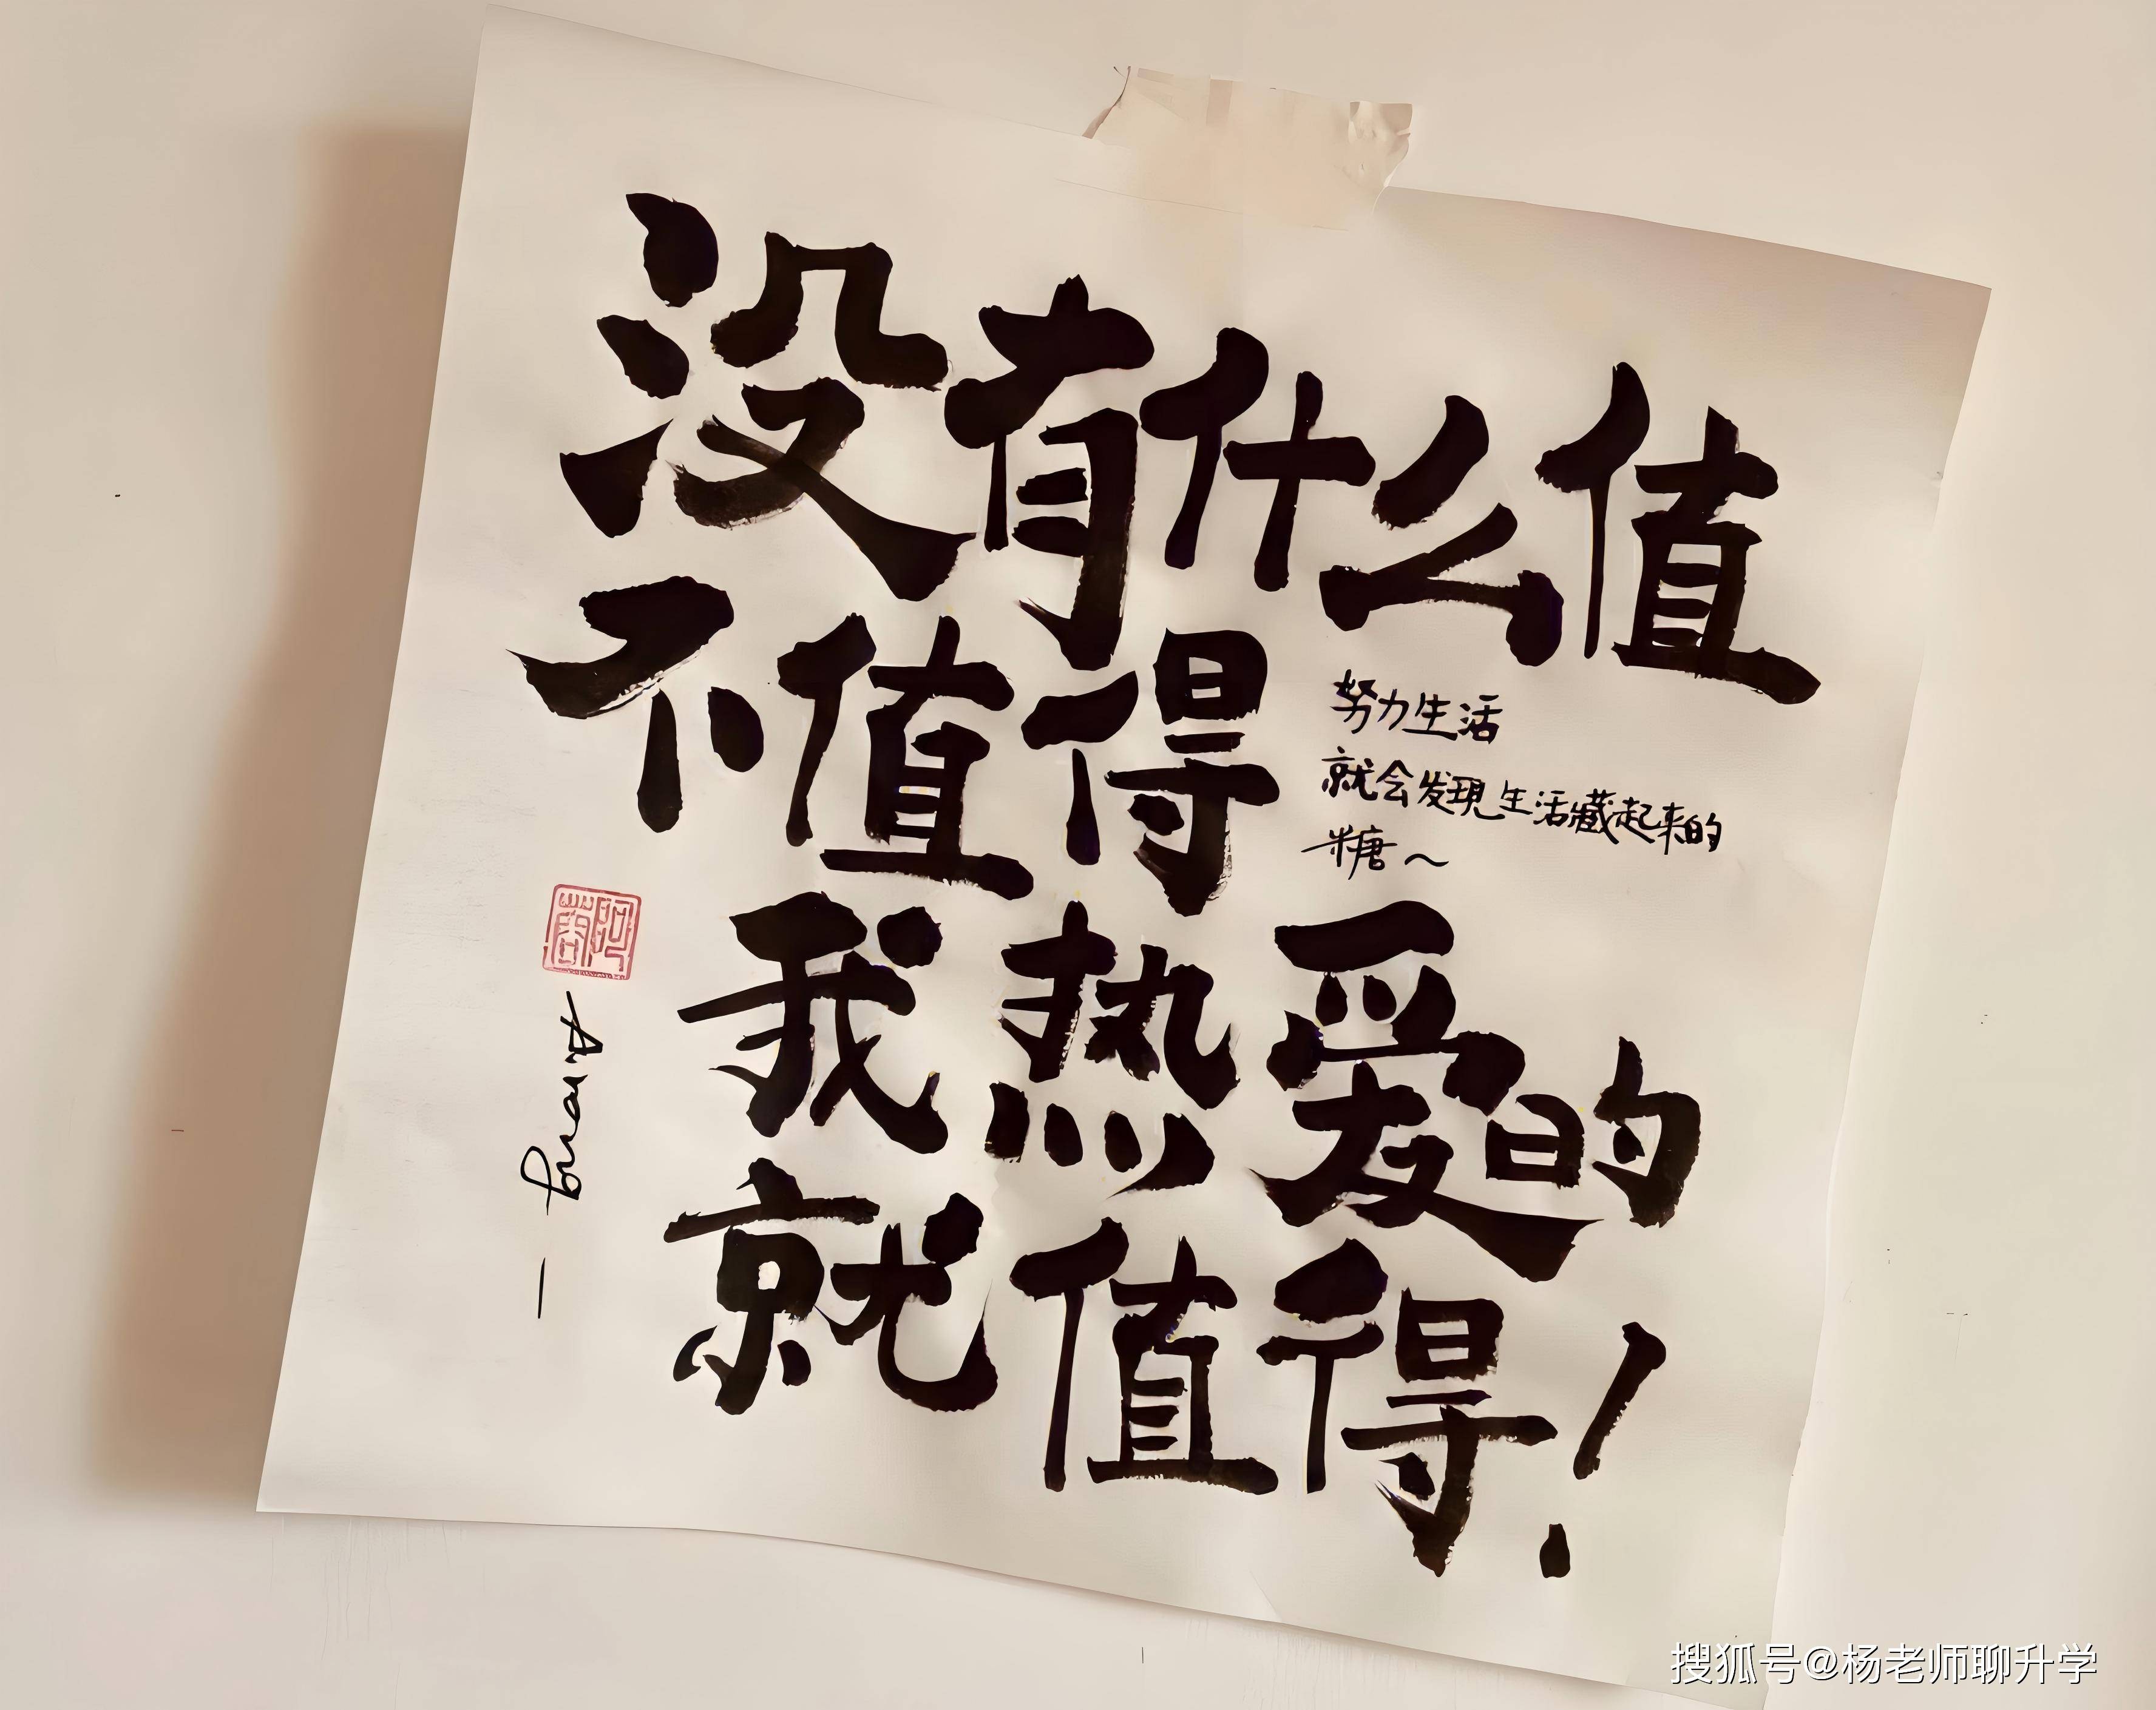 没有什么值
不值得
努力生活
就会发現生活藏起来的
糖～
我热爱的
就值得！
搜狐号@杨老师聊升学